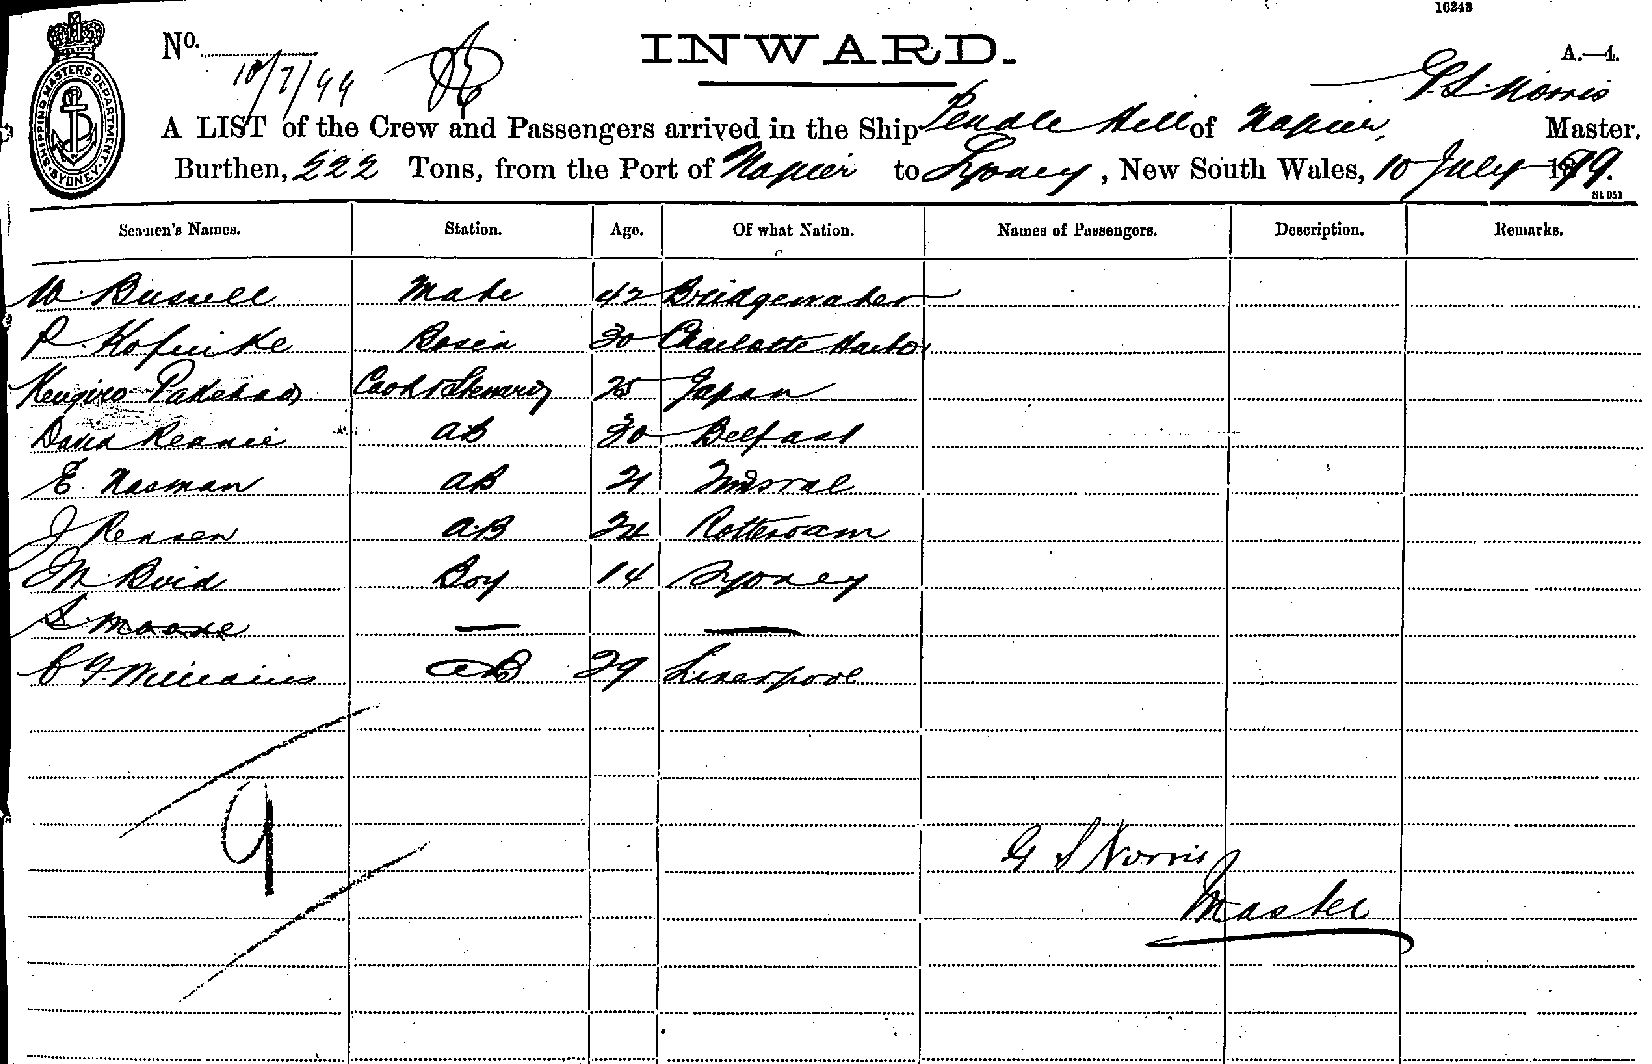 10343
No. INWARD. A.—4.
10/7/99
G. S. Norris
SHIPPING MASTERS DEPARTMENT SYDNEY
A LIST of the Crew and Passengers arrived in the Ship Pendle Hill of Napier, Master.
Burthen, 222 Tons, from the Port of Napier to Sydney, New South Wales, 10 July 1899.
St 053
Seamen's Names. Station. Age. Of what Nation. Names of Passengers. Description. Remarks.
W. Bussell Mate 42 Bridgewater
P. 30 Charlotte Harbor
Cook & Steward 25 Japan
David AB 30 Belfast
E. Nasman AB 21
J Rensen A.B 24 Rotterdam
Boy 14 Sydney
S Moore — —
C F Williams AB 29 Liverpool
9
G S Norris
Master